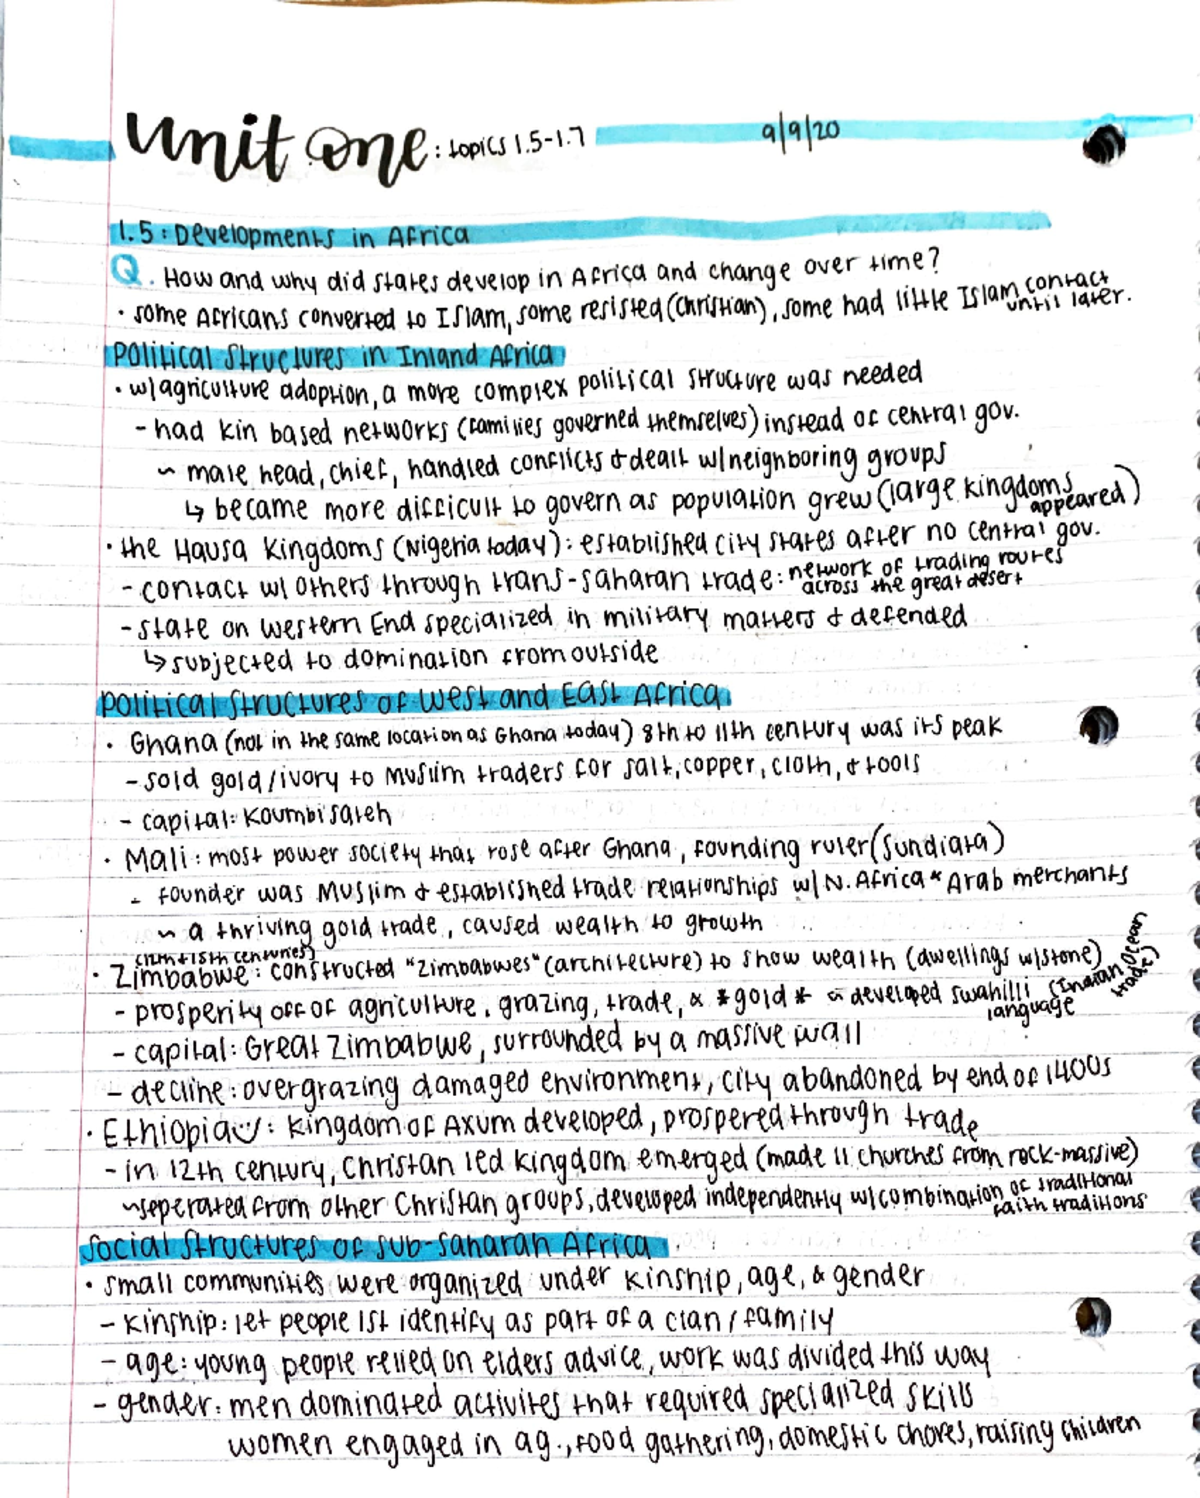 unit one: topics 1.5-1.7 9/9/20
1.5: Developments in Africa
Q. How and why did states develop in Africa and change over time?
• some Africans converted to Islam, some resisted (Christian), some had little Islam contact until later.
Political Structures in Inland Africa
• w/ agriculture adoption, a more complex political structure was needed
- had kin based networks (families governed themselves) instead of central gov.
~ male head, chief, handled conflicts & dealt w/ neighboring groups
↳ became more difficult to govern as population grew (large kingdoms appeared)
• the Hausa Kingdoms (Nigeria today): established city states after no central gov.
- contact w/ others through trans-saharan trade: network of trading routes across the great desert
- state on western End specialized in military matters & defended
↳ subjected to domination from outside
Political Structures of West and East Africa
• Ghana (not in the same location as Ghana today) 8th to 11th century was its peak
- sold gold/ivory to Muslim traders for salt, copper, cloth, & tools
- capital: Koumbi saleh
• Mali: most power society that rose after Ghana, founding ruler (Sundiata)
- founder was Muslim & established trade relationships w/ N. Africa * Arab merchants
~ a thriving gold trade, caused wealth to growth
(12th & 15th centuries)
• Zimbabwe: constructed "zimbabwes" (architecture) to show wealth (dwellings w/ stone)
- prosperity off of agriculture, grazing, trade, & * gold * ~ developed swahilli language (Indian Ocean trade)
- capital: Great Zimbabwe, surrounded by a massive wall
- decline: overgrazing damaged environment, city abandoned by end of 1400s
• Ethiopia: Kingdom of Axum developed, prospered through trade
- in 12th century, Christan led kingdom emerged (made 11 churches from rock-massive)
~ seperated from other Christan groups, developed independently w/ combination of traditional faith traditions
Social Structures of Sub-Saharan Africa
• small communities were organized under kinship, age, & gender
- kinship: let people 1st identify as part of a clan / family
- age: young people relied on elders advice, work was divided this way
- gender: men dominated activites that required specialized skills
women engaged in ag., food gathering, domestic chores, raising children